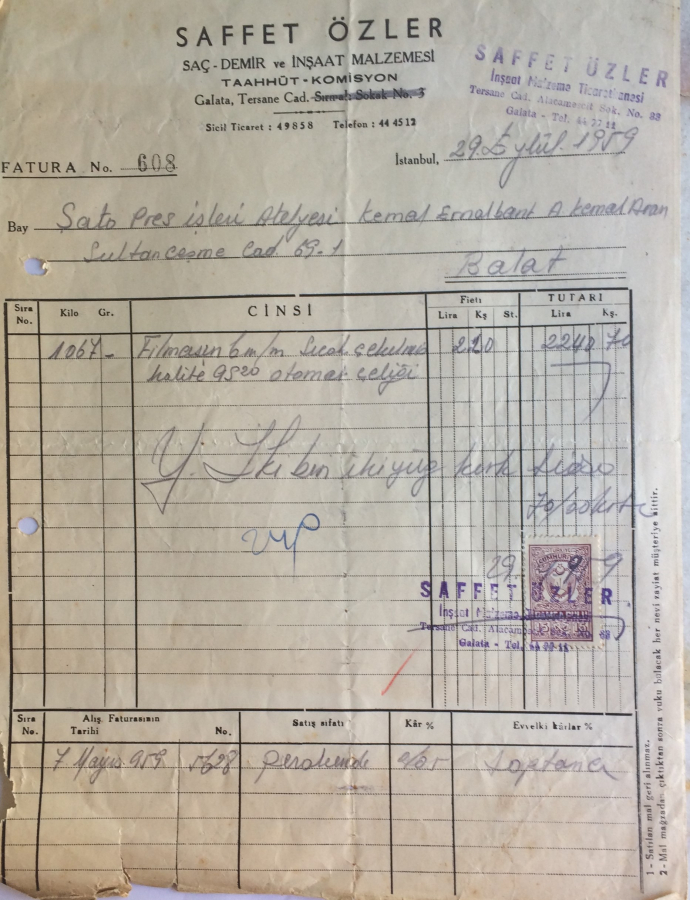 SAFFET ÖZLER
SAÇ-DEMİR ve İNŞAAT MALZEMESİ
TAAHHÜT-KOMİSYON
Galata, Tersane Cad. Sırmalı Sokak No. 3
Sicil Ticaret : 49858 Telefon : 44 45 12
SAFFET ÖZLER
İnşaat Malzeme Ticarethanesi
Tersane Cad. Alacamescit Sok. No. 88
Galata - Tel. 44 27 11
FATURA No. 608
İstanbul, 29. Eylül. 1959
Bay Şato Pres işleri Atelyesi Kemal Ernalbant A Kemal Aran
Sultançeşme Cad. 69-1
Balat
Sıra No. Kilo Gr. CİNSİ Fietı Lira Kş St. TUTARI Lira Kş.
1067- 6 m/m Sıcak 210 2240 70
kalite 9S20 otomat çeliği
Y: İki bin ikiyüz kırk lira
70/
29. 9 9
SAFFET ÖZLER
İnşaat Malzeme Ticarethanesi
Tersane Cad. Alacamescit Sok. No. 88
Galata - Tel. 44 27 11
Sıra No. Alış Faturasının Tarihi No. Satış sıfatı Kâr % Evvelki kârlar %
7 Mayıs 959 5628 Perakende Toptancı
1 - Satılan mal geri alınmaz.
2 - Mal mağazadan çıktıktan sonra vuku bulacak her nevi zayiat müşteriye aittir.